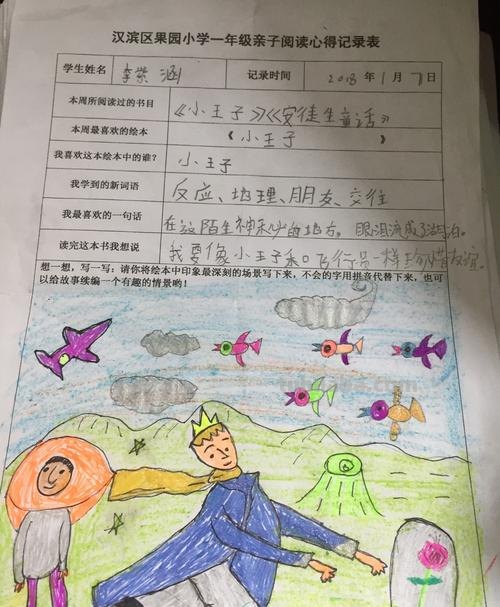 汉滨区果园小学一年级亲子阅读心得记录表
学生姓名 李紫涵 记录时间 2018 年 1 月 7 日
本周所阅读过的书目 《小王子》《安徒生童话》
本周最喜欢的绘本 《小王子》
我喜欢这本绘本中的谁？ 小王子
我学到的新词语 反应、地理、朋友、交往
我最喜欢的一句话 在这陌生神秘的地方。眼泪流成了湖泊。
读完这本书我想说 我要像小王子和飞行员一样珍惜友谊。
想一想，写一写：请你将绘本中印象最深刻的场景写下来，不会的字用拼音代替下来，也可
以给故事续编一个有趣的情景哟！